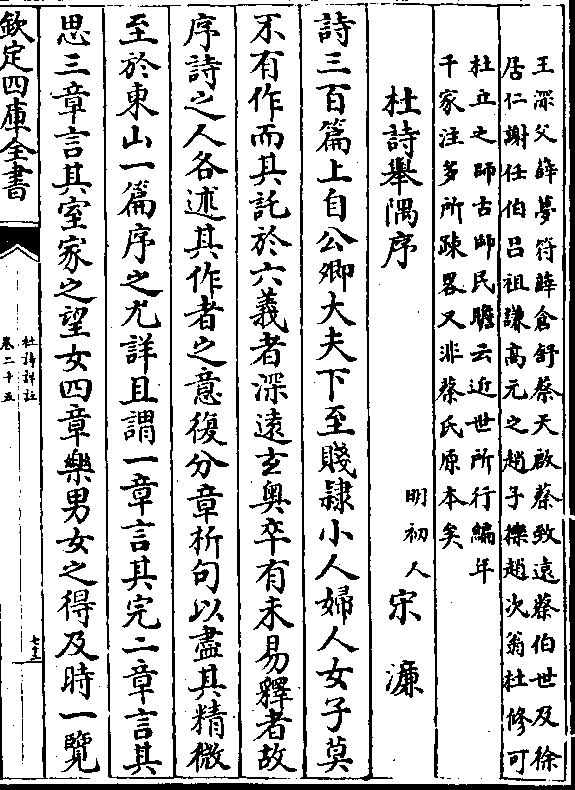 王深父薛夢符薛倉舒蔡天啟蔡致遠蔡伯世及徐
居仁謝任伯呂祖謙高元之趙子櫟趙次翁杜修可
杜立之師古師民瞻云近世所行編年
千家注多所踈畧又非蔡氏原本矣
杜詩舉隅序
明初人 宋濂
詩三百篇上自公卿大夫下至賤隸小人婦人女子莫
不有作而其託於六義者深遠玄奥卒有未易釋者故
序詩之人各述其作者之意復分章析句以盡其精微
至於東山一篇序之尤詳且謂一章言其完二章言其
思三章言其室家之望女四章樂男女之得及時一覽
欽定四庫全書
杜詩詳註
卷二十五